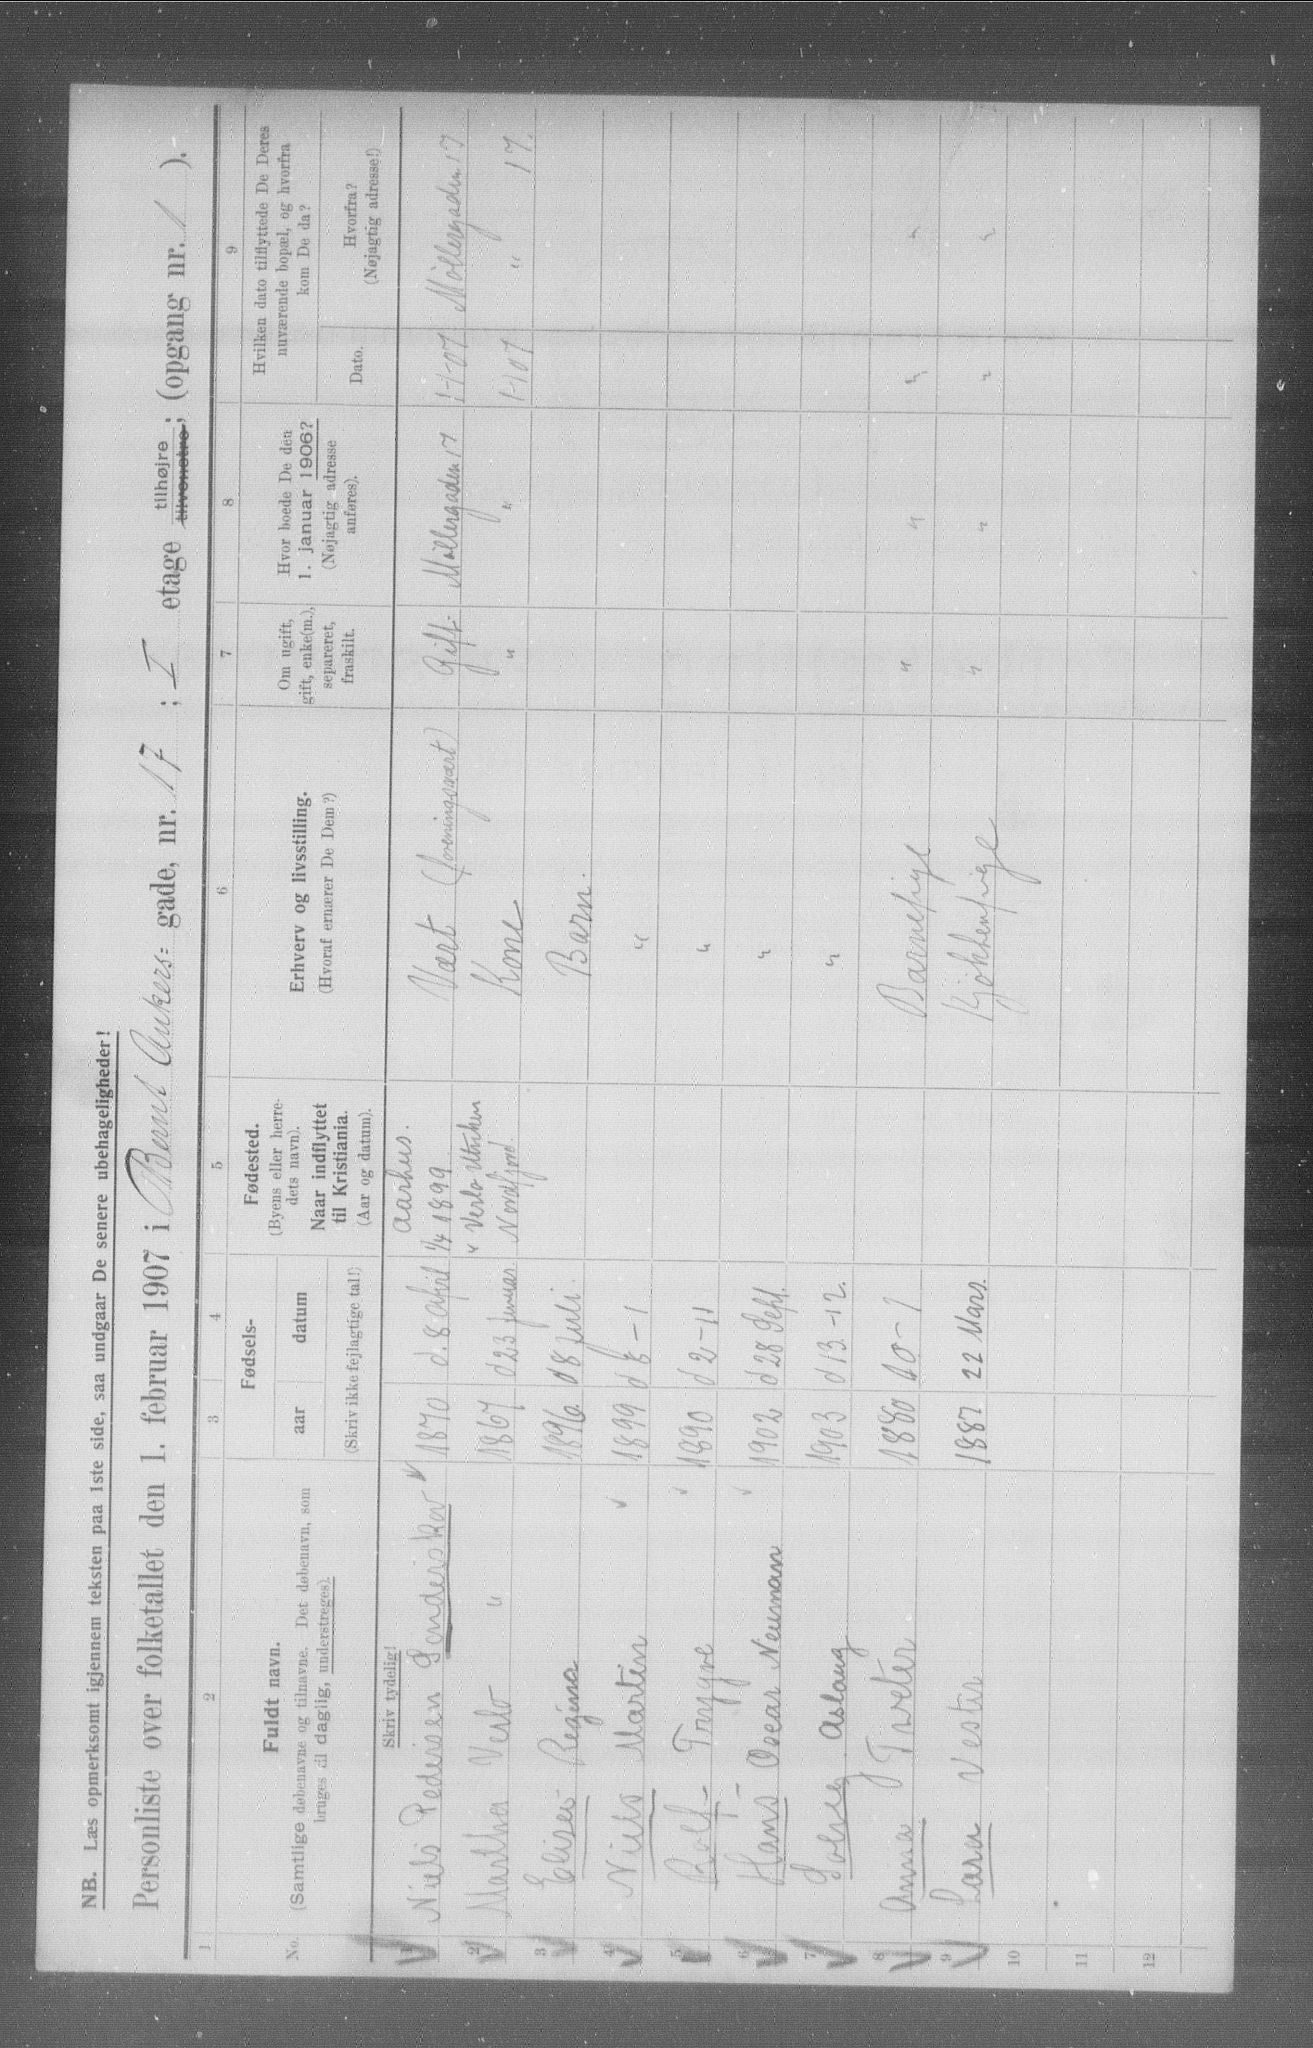 NB. Læs opmerksomt igjennem teksten paa 1ste side, saa undgaar De senere ubehageligheder!
Personliste over folketallet den 1. februar 1907 i Bernt Ankers- gade, nr. 17 ; I etage tilhøjre tilvenstre; (opgang nr. 1 ).
1 2 3 4 5 6 7 8 9
No.
Fuldt navn.
(Samtlige døbenavne og tilnavne. Det døbenavn, som
bruges til daglig, understreges).
Fødsels-
aar datum
(Skriv ikke fejlagtige tal!)
Fødested.
(Byens eller herre-
dets navn).
Naar indflyttet
til Kristiania.
(Aar og datum).
Erhverv og livsstilling.
(Hvoraf ernærer De Dem?)
Om ugift,
gift, enke(m.),
separeret,
fraskilt.
Hvor boede De den
1. januar 1906?
(Nøjagtig adresse
anføres).
Hvilken dato tilflyttede De Deres
nuværende bopæl, og hvorfra
kom De da?
Dato.
Hvorfra?
(Nøjagtig adresse!)
Skriv tydelig!
1 Niels Pedersen Sonderskov 1870 d. 8 april Aarhus. 1/4 1899 Vært (foreningsvært) Gift Møllergaden 17 1-1-07 Møllergaden 17
2 Martha Verlo " 1867 d 23 januar " Verlo Nordfjord. Kone " " 1-1 07 " 17.
3 Regina 1896 d 8 juli. Barn.
4 Niels Martin 1899 d 8 - 1 "
5 Rolf - Trygve 1890 d 2 - 11 "
6 Hans Oscar Neuman 1902 d 28 Sept. "
7 Solveig Aslaug 1903 d 13 - 12. "
8 Anna Tveter 1880 Barnepige " " " "
9 Lara Vestir 1887 22 Mars. Kjøkkenpige " " " "
10
11
12